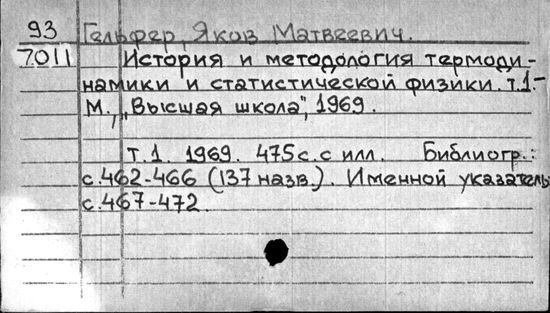 93 Гельфер, Яков Матвеевич.
7011 История и методология термоди-
намики и статистической физики. т.1.-
М., „Высшая школа", 1969.
т.1. 1969. 475с. с илл. Библиогр.:
с.462-466 (137 назв.). Именной указатель
с.467-472.